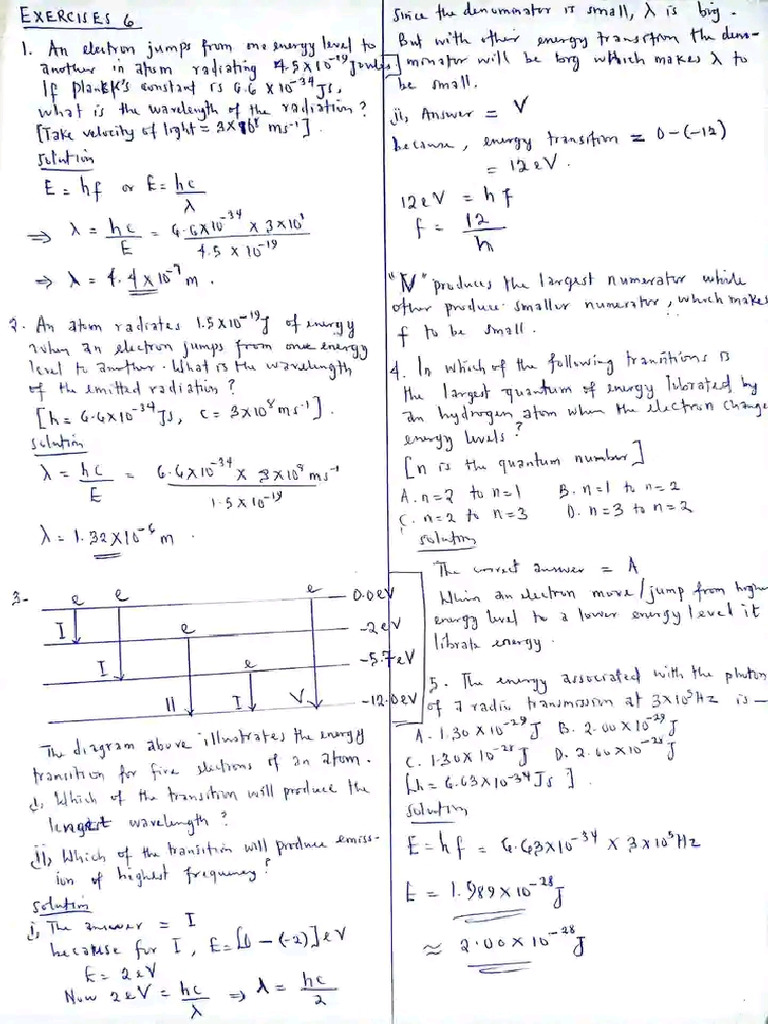 EXERCISES 6
1. An electron jumps from one energy level to
another in atom radiating 4.5 x 10^-19 Joules
If plank's constant is 6.6 x 10^-34 Js,
what is the wavelength of the radiation?
[Take velocity of light = 3x10^8 ms^-1].
solution
E = hf or E = hc/λ
⇒ λ = hc/E = 6.6x10^-34 x 3x10^8 / 4.5 x 10^-19
⇒ λ = 4.4x10^-7 m.
2. An atom radiates 1.5x10^-19 J of energy
when an electron jumps from one energy
level to another. What is the wavelength
of the emitted radiation?
[h = 6.6x10^-34 Js, c = 3x10^8 ms^-1].
solution
λ = hc/E = 6.6x10^-34 x 3x10^8 ms^-1 / 1.5 x 10^-19
λ = 1.32x10^-6 m.
3.
e e e 0.0eV
I e -2eV
I e -5.7eV
II I V -12.0eV
The diagram above illustrates the energy
transition for five electrons of an atom.
i, Which of the transition will produce the
longest wavelength?
ii, Which of the transition will produce emiss-
ion of highest frequency?
solution
i, The answer = I
because for I, E = [0 - (-2)] eV
E = 2eV
Now 2eV = hc/λ ⇒ λ = hc/2
Since the denominator is small, λ is big.
But with other energy transition the deno-
minator will be big which makes λ to
be small.
ii, Answer = V
because, energy transition = 0-(-12)
= 12eV.
12eV = hf
f = 12/h
"V" produces the largest numerator while
other produce smaller numerator, which makes
f to be small.
4. In which of the following transitions is
the largest quantum of energy librated by
an hydrogen atom when the electron change
energy levels?
[n is the quantum number]
A. n=2 to n=1 B. n=1 to n=2
C. n=2 to n=3 D. n=3 to n=2
solution
The correct answer = A
When an electron move/jump from higher
energy level to a lower energy level it
librate energy.
5. The energy associated with the photon
of a radio transmission at 3x10^5 Hz is —
A. 1.30 x 10^-29 J B. 2.00 x 10^-29 J
C. 1.30 x 10^-28 J D. 2.00 x 10^-28 J
[h = 6.63x10^-34 Js].
solution
E = hf = 6.63x10^-34 x 3x10^5 Hz
E = 1.989 x 10^-28 J
≈ 2.00 x 10^-28 J